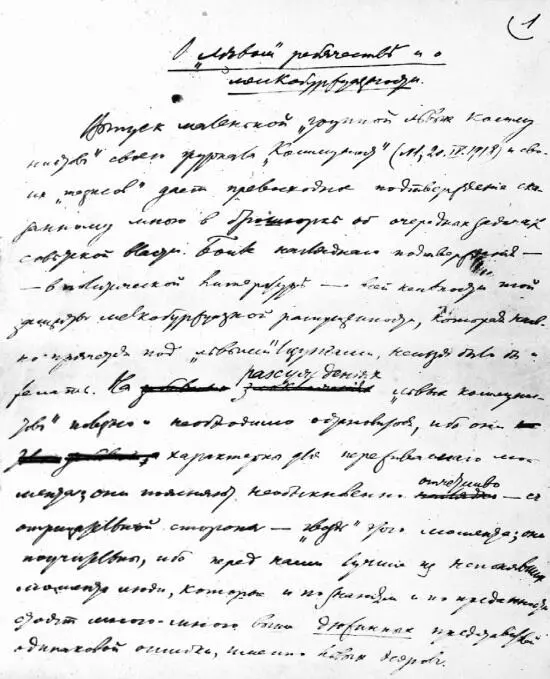 1
О „левом" ребячестве и о
мелкобуржуазности.
Выпуск маленькой „группой левых комму
нистов" своего журнала „Коммунист" (№1, 20.IV.1918) и сво-
их „тезисов" дает превосходное подтверждение ска
занному мною в брошюре об очередных задачах
советской власти. Более наглядного подтверждения —
— в политической литературе — всей наивности той
защиты мелкобуржуазной распущенности, которая иног
да прячется под „левыми" лозунгами, нельзя было бы
желать. На рассуждениях „левых коммунис
тов" полезно и необходимо остановиться, ибо они
характерны для переживаемого мо
мента; они поясняют необыкновенно отчетливо — с
отрицательной стороны — „гвоздь" этого момента; они
поучительны, ибо перед нами лучшие из непонявших
момента люди, которые и по знаниям и по преданности
стоят много-много выше дюжинных представителей
одинаковой ошибки, именно левых эсеров.